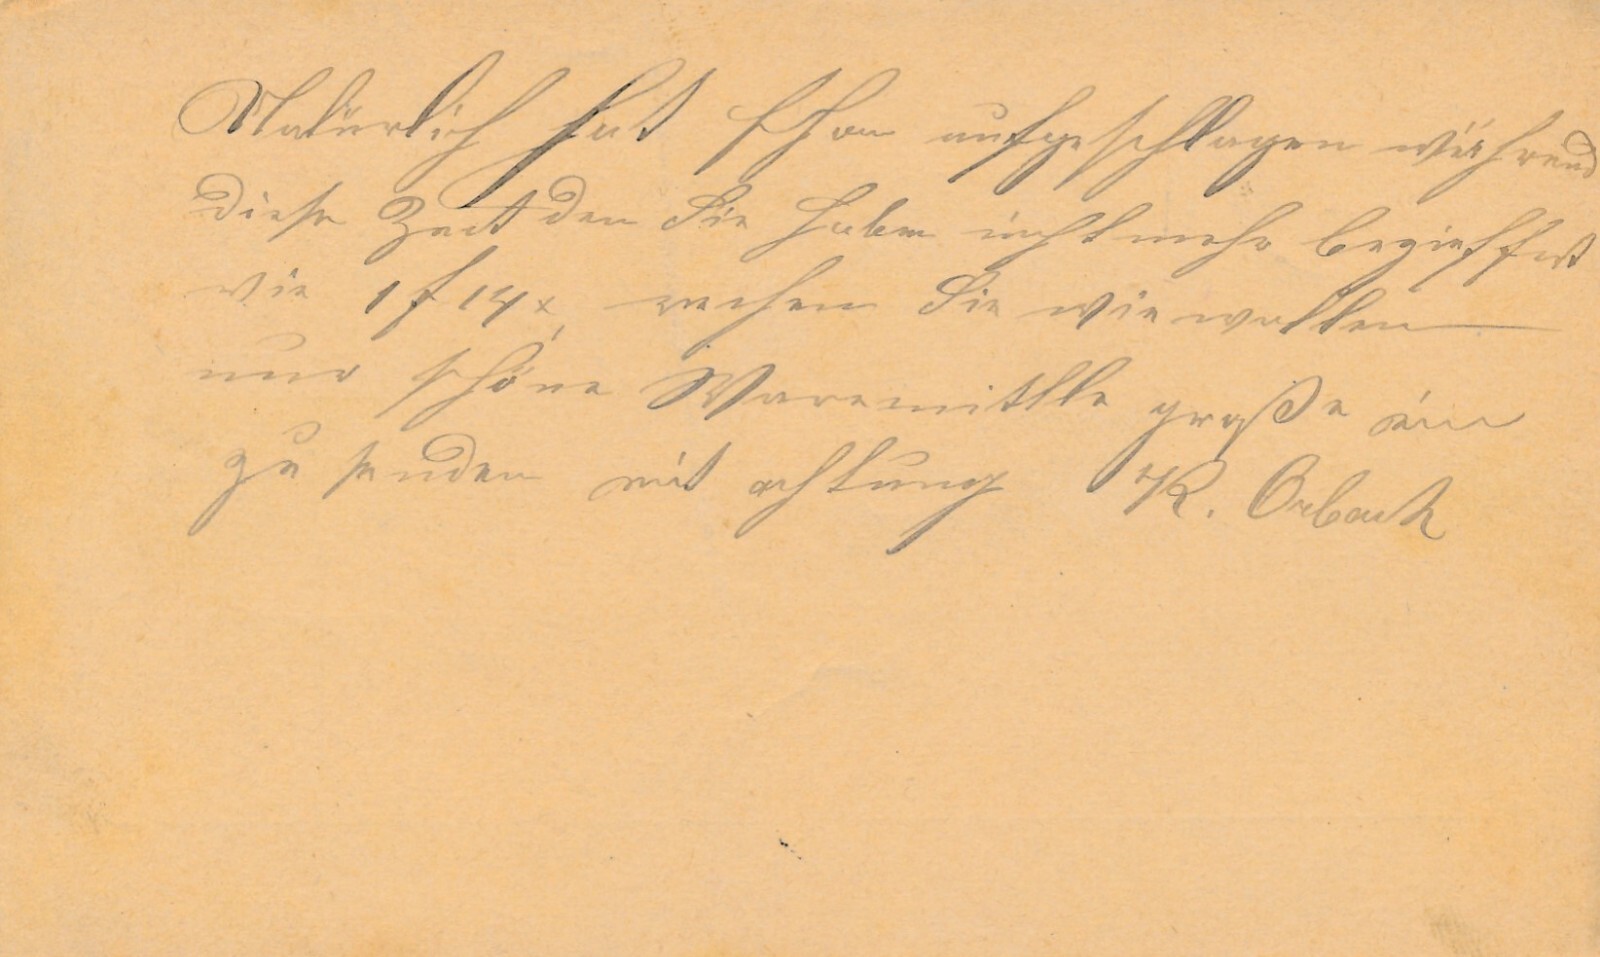 Natürlich hat schon aufgeschlagen während
diese Zeit den Sie haben nicht mehr
wie 1 f 14 x, rechen Sie wie wollen
nur schöne Ware mittle große ein
zu senden mit achtung K. Orbach